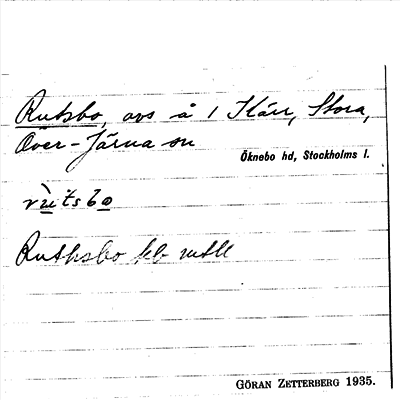 Rutsbo, avs å 1 Kärr, Stora,
Över-Järna sn
Öknebo hd, Stockholms l.
Ruthsbo jb
GÖRAN ZETTERBERG 1935.